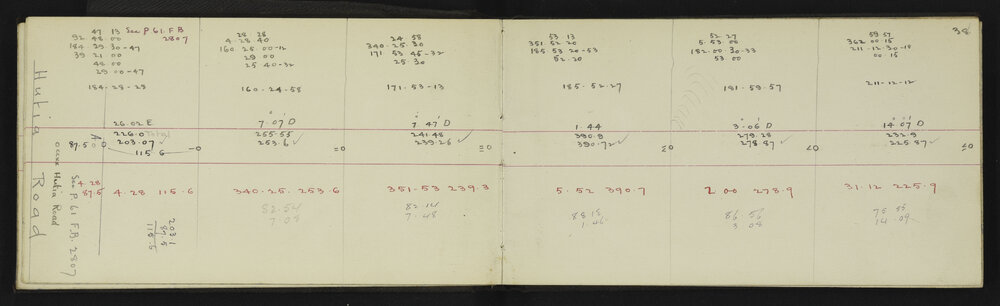 47 13 See P 61 F.B
92.48 00 2807
184 29 30-47
39 21 00
48 00
29 00-47
184-28-29
26.02 E
226.0 Total
87.5 A 0 203.07 ✓
115 6
4.28
87.5 4.28 115.6
203.1
87.5
115.6
Hutia Road
Hutia Road
See P.61 F.B. 2807
28 28
4.28 40
160 25 00-12
29 00
25 40-32
160.24-58
7.07 D
255.55
253.6 ✓
=0
340.25. 253.6
82.54
7.08
24 58
340.25.30
171 53 45-32
25.30
171.53-13
7 47 D
241.48
239.26 ✓
=0
351.53 239.3
82.14
7.48
53 13
351 52 20
185 53 20-53
52.20
185.52.27
1.44
390.9
390.72 ✓
=0
5.52 390.7
88 18
1.46
52 27
5.53 00
182.00.30-33
53 00
181.59.57
3.06 D
279.28
278.87 ✓
=0
2 00 278.9
86 56
3 08
38
59 57
362 00 15
211.12.30-18
00 15
211-12-12
14 07 D
232.9
225.87 ✓
=0
31.12 225.9
75 55
14.09